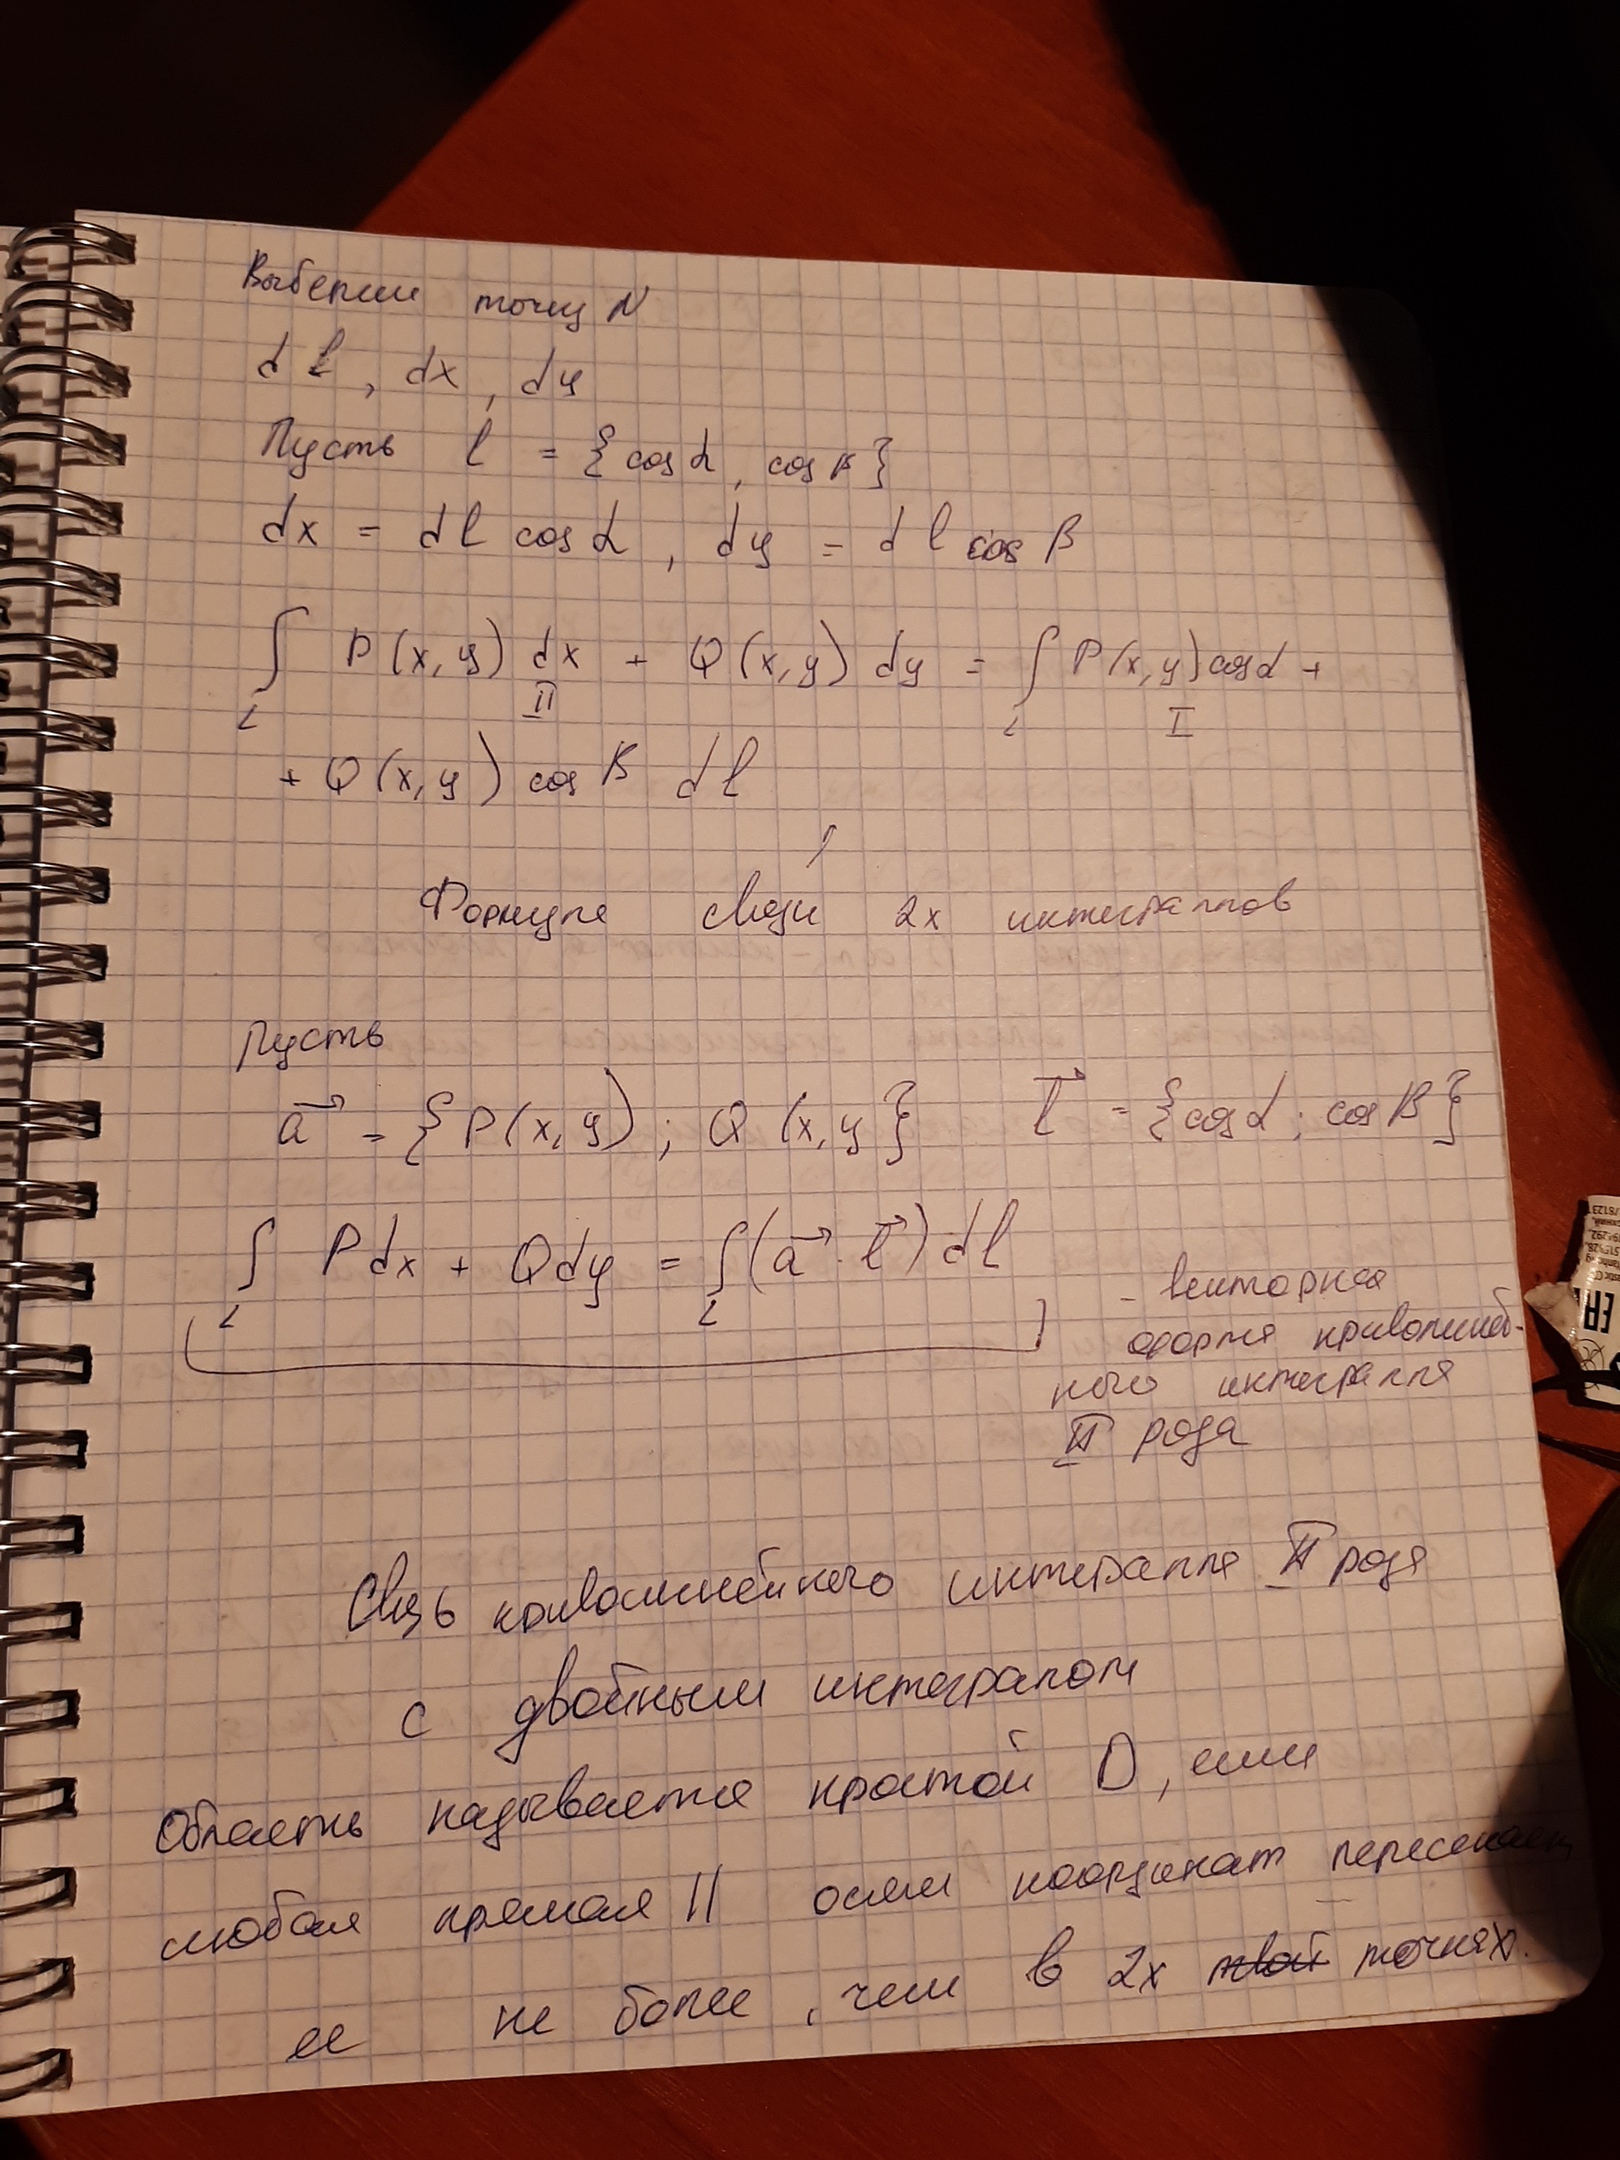 Выберем точку N
dl, dx, dy
Пусть l = {cos α, cos β}
dx = dl cos α, dy = dl cos β
∫ P(x,y) dx + Q(x,y) dy = ∫ P(x,y) cos α +
L II L I
+ Q(x,y) cos β dl
Формула связи 2х интегралов
Пусть
a⃗ = {P(x,y); Q(x,y)} l⃗ = {cos α; cos β}
∫ Pdx + Qdy = ∫ (a⃗ · l⃗) dl
L L
- векторная
форма криволиней-
ного интеграла
II рода
Связь криволинейного интеграла II рода
с двойным интегралом
Область называется простой D, если
любая прямая || осям координат пересекает
ее не более, чем в 2х точках.